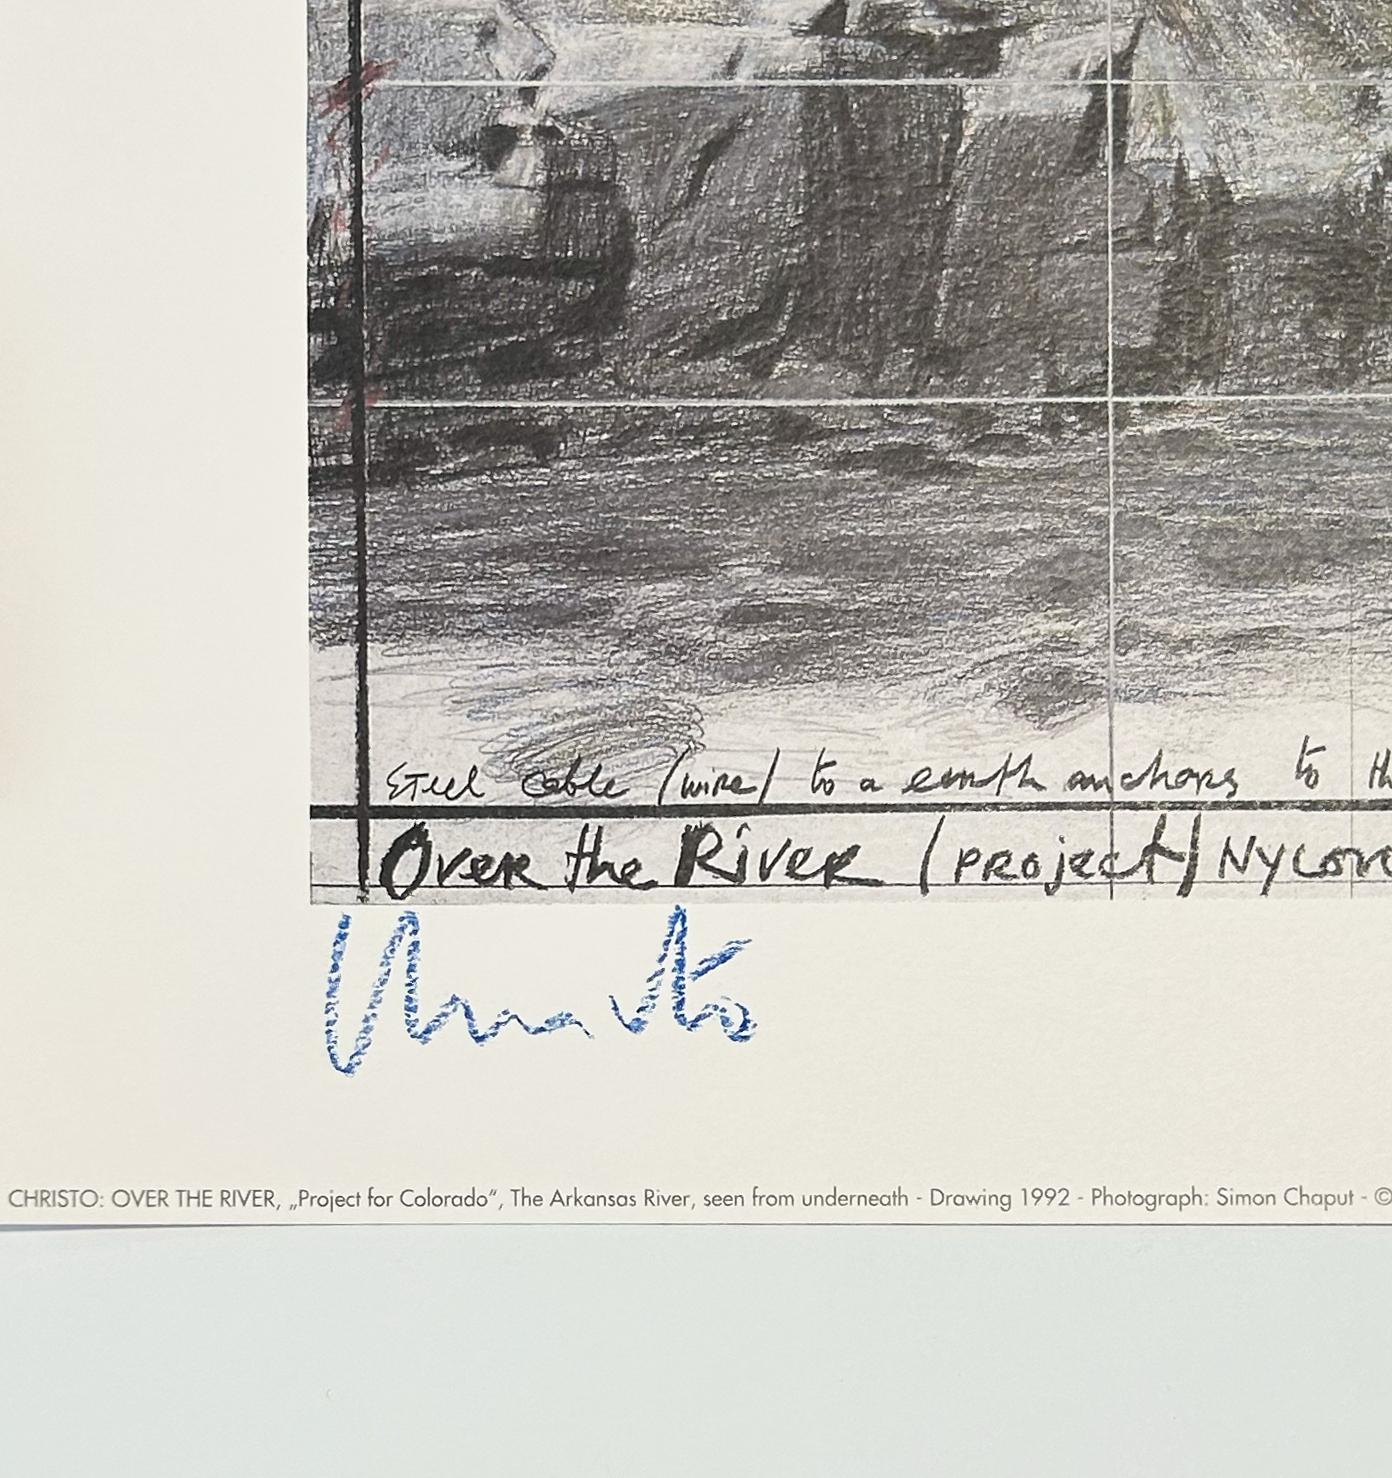 Steel cable /wire/ to a earth anchors to th
Over the River /project/ Nylon
Christo
CHRISTO: OVER THE RIVER, „Project for Colorado“, The Arkansas River, seen from underneath - Drawing 1992 - Photograph: Simon Chaput - ©